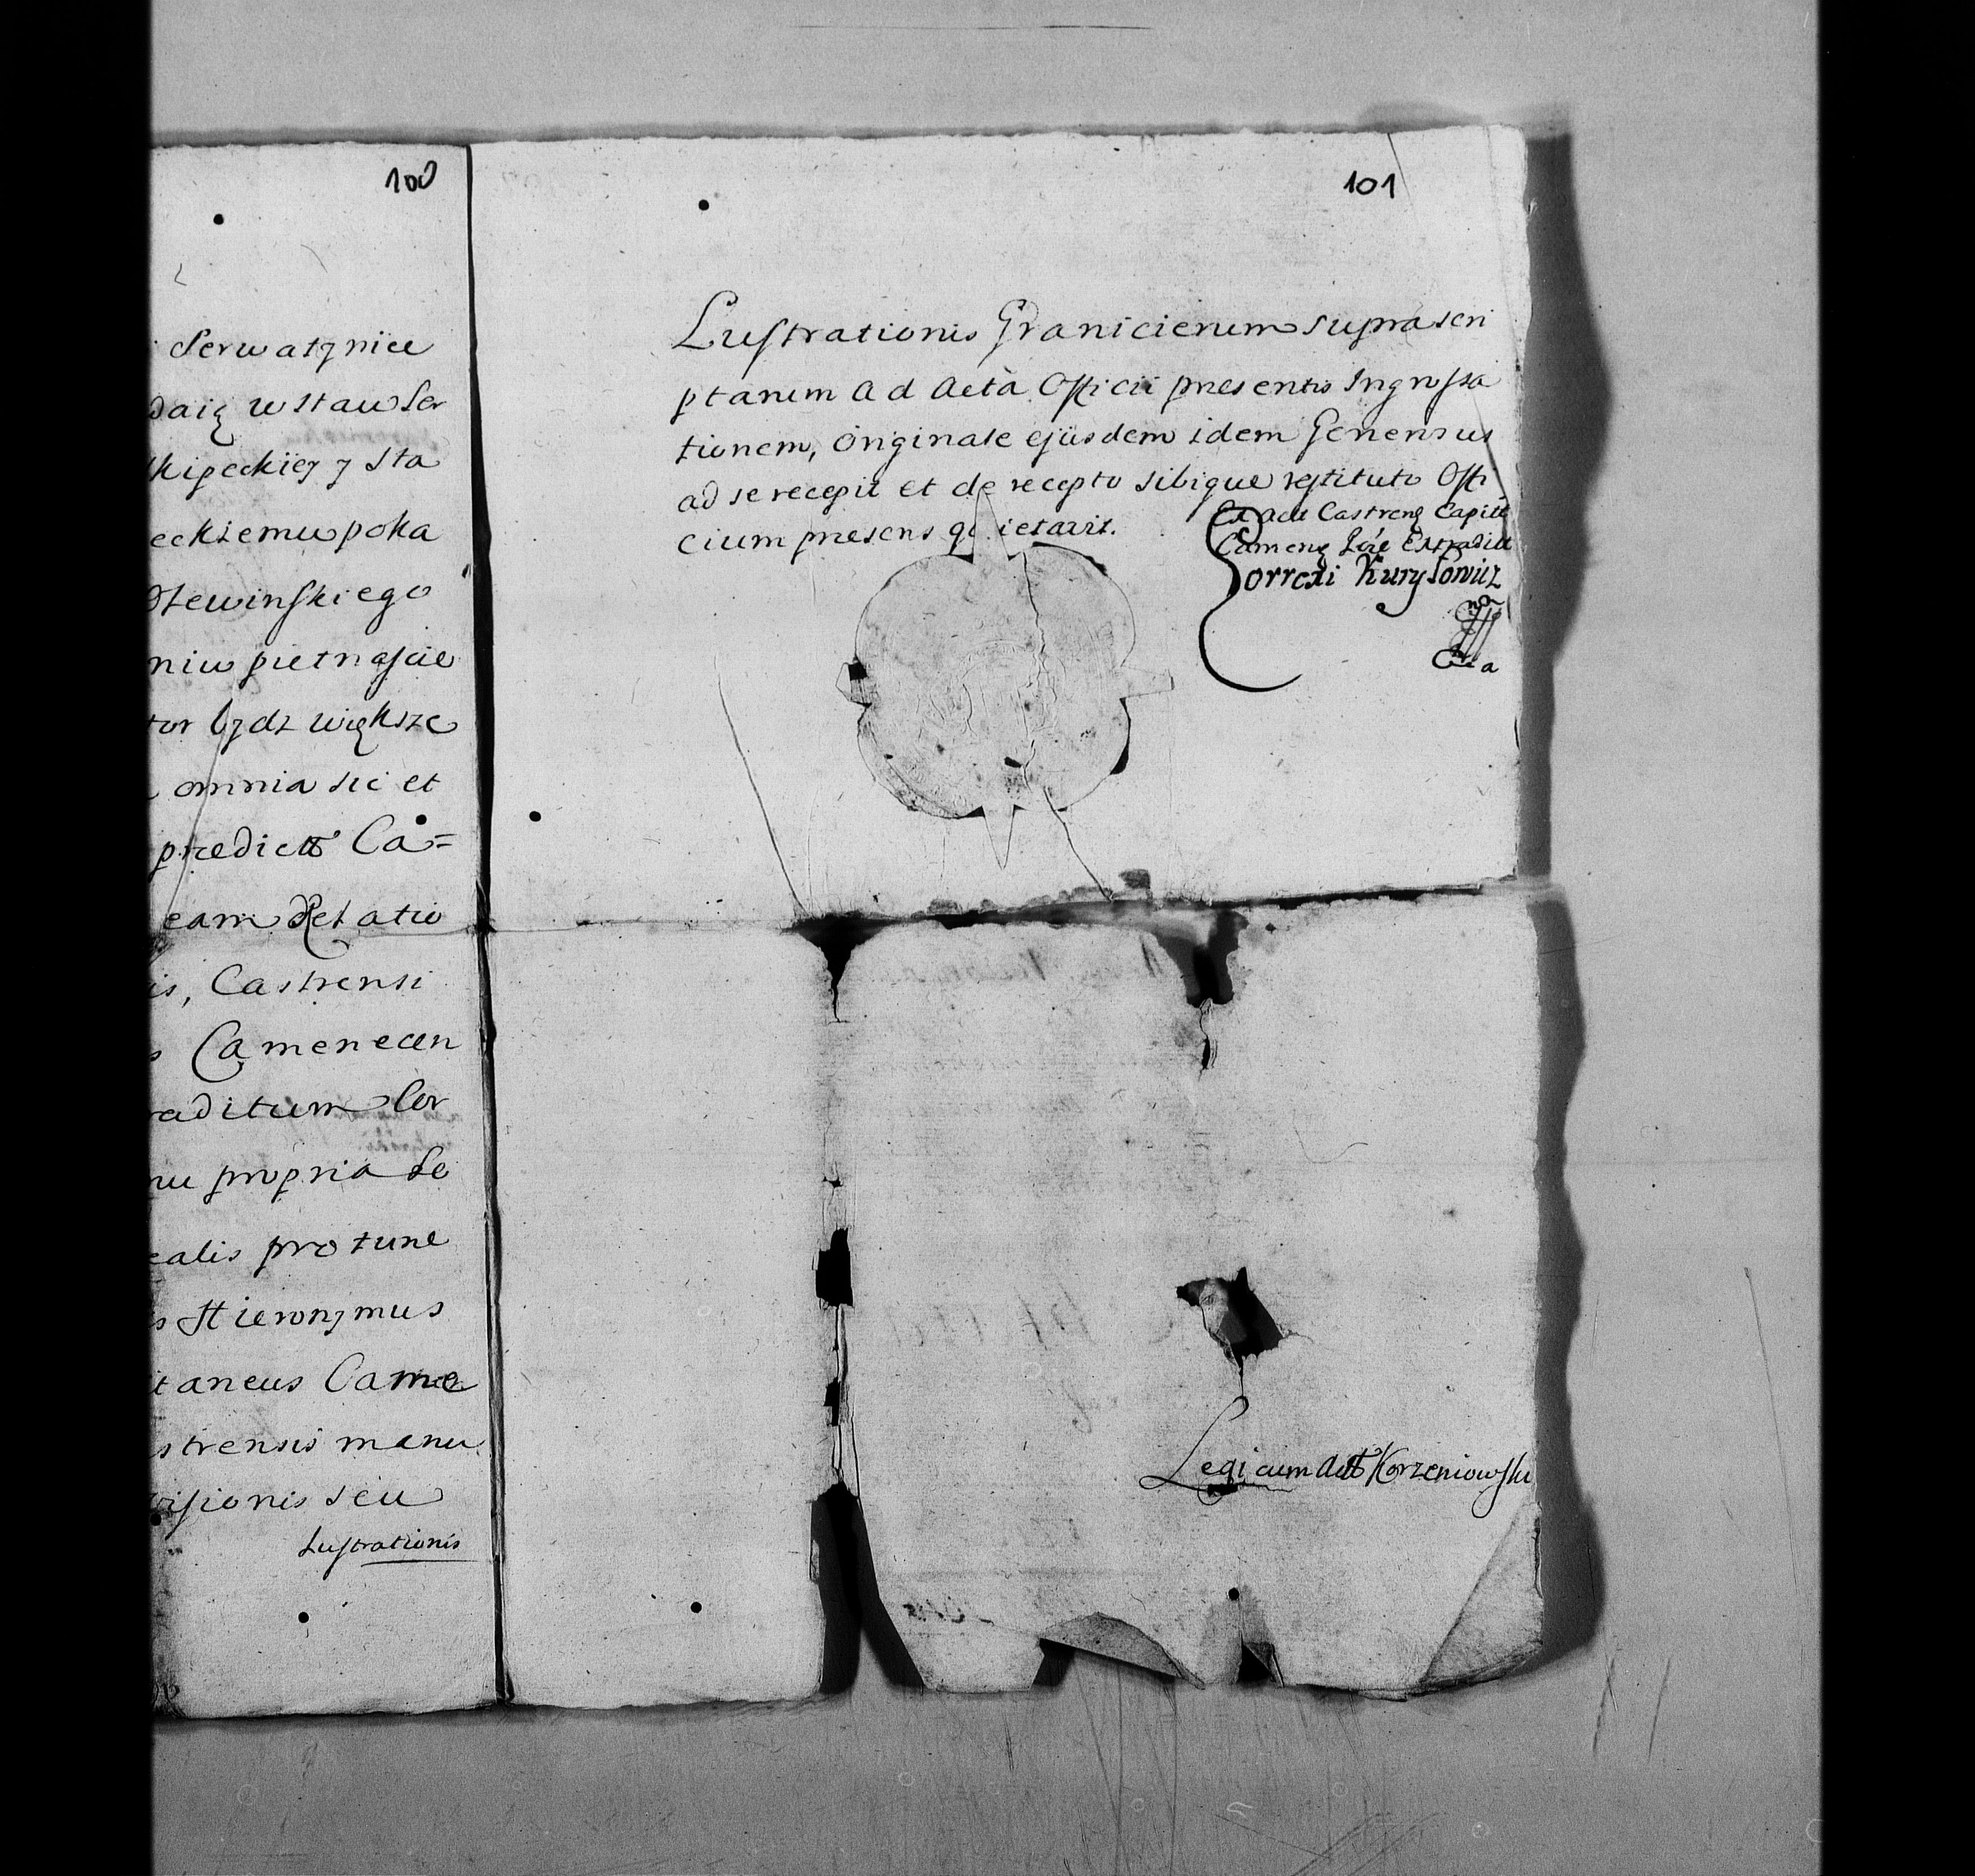 100
Serwatynice
daią w staw Ser
skipeckiey y sta
eckiemu poka
Olewinskiego
niu pietnascie
tor bydz większe
omnia sic et
prædictæ Ca=
eam Relatio
is, Castrensi
s Camenecen
raditum Cor
nu propria Se
ealis pro tunc
s Hieronymus
itaneus Came
strensis manu
visionis seu
Lustrationis
101
Lustrationis Granicierum suprascri
ptarum Ad Acta Officii presentis Ingrossa
tionem, Originale ejusdem idem Generosus
ad se recepit et de recepto sibique restituto Offi
cium presens quietavit.
Ex actis Castren Capit
Camene Extradit
Correxi Kuryłowicz
Legi cum Actis Korzeniowski